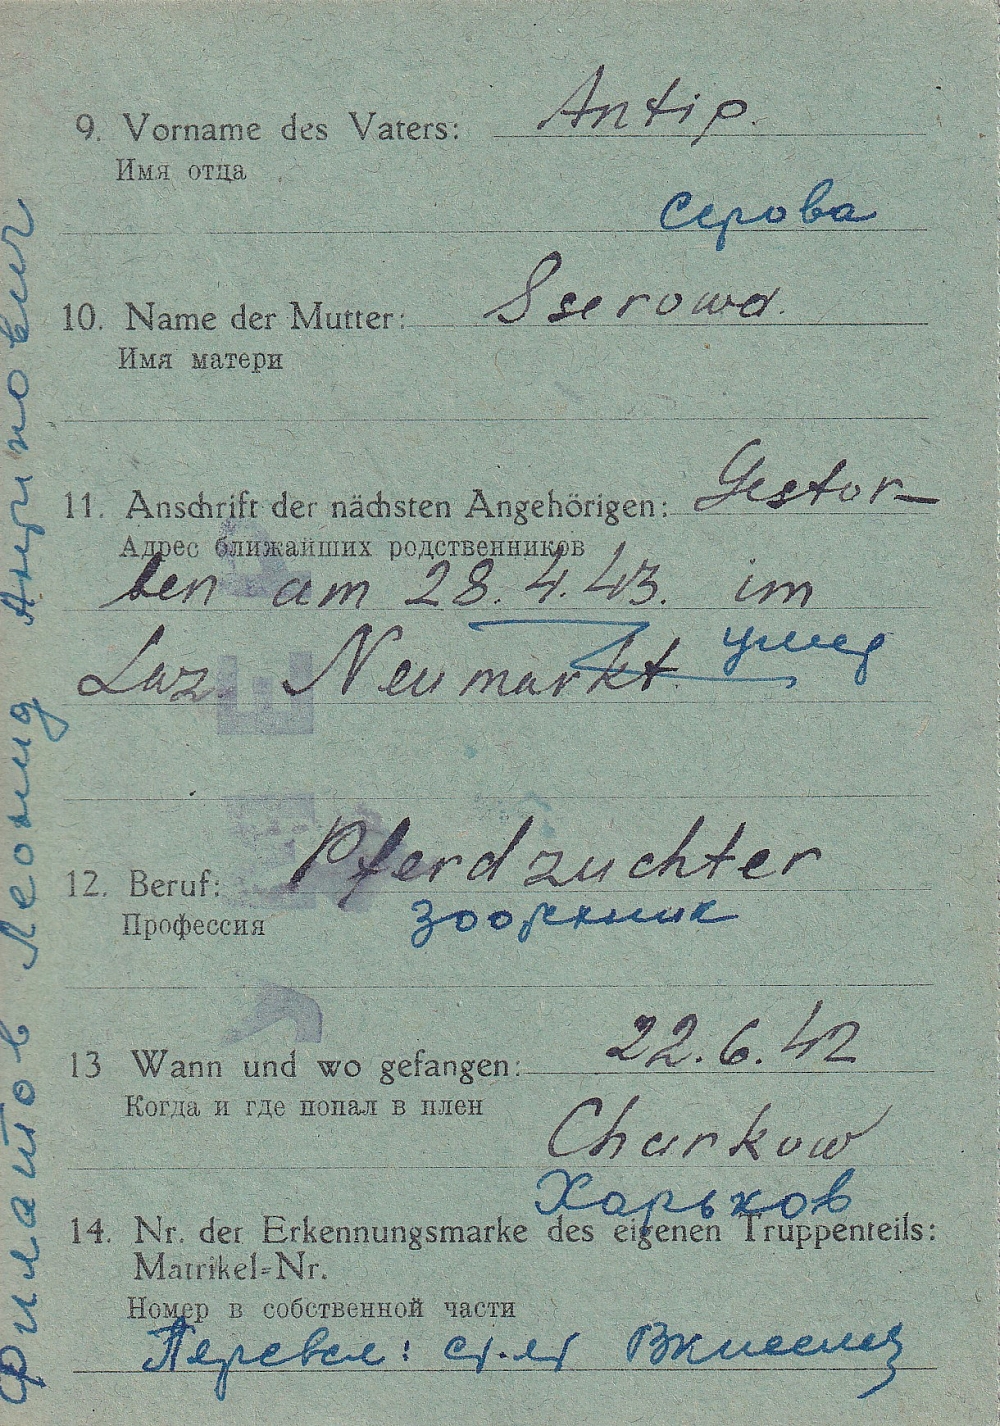 9. Vorname des Vaters: Antip.
Имя отца
Серова
10. Name der Mutter: Sserowa.
Имя матери
11. Anschrift der nächsten Angehörigen: Gestor-
Адрес ближайших родственников
ben am 28.4.43. im
Laz. Neumarkt.
умер
12. Beruf: Pferdzuchter
Профессия
зоотехник
13 Wann und wo gefangen: 22.6.42
Когда и где попал в плен
Charkow
Харьков
14. Nr. der Erkennungsmarke des eigenen Truppenteils:
Matrikel-Nr.
Номер в собственной части
Перевел: ст. лт
Филатов Леонид Антипович